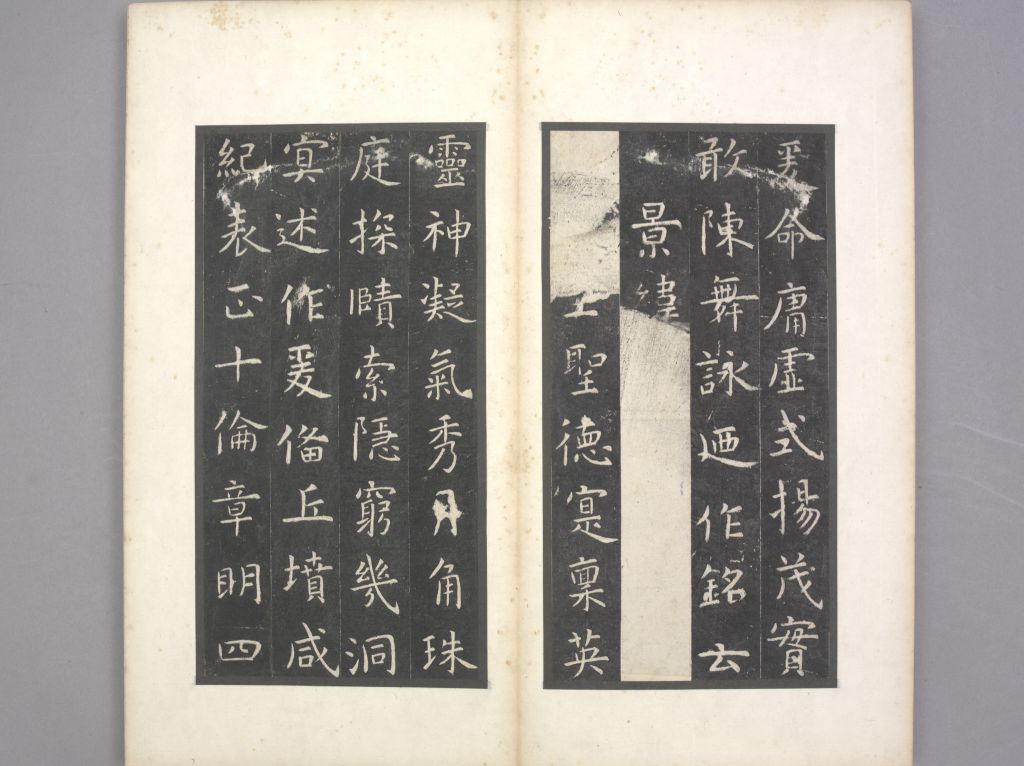 爰命庸虛式揚茂實
敢陳舞詠廼作銘云
景緯
上聖德寔稟英
靈神凝氣秀月角珠
庭探賾索隱窮幾洞
㝠述作爰俻丘墳咸
紀表正十倫章明四